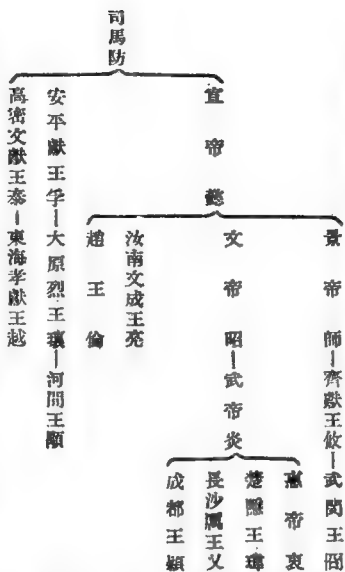 司馬防
宣帝懿
景帝師—齊獻王攸—武閔王冏
文帝昭—武帝炎
惠帝衷
楚隱王瑋
長沙厲王乂
成都王穎
汝南文成王亮
趙王倫
安平獻王孚—大原烈王瓌—河間王顒
高密文獻王泰—東海孝獻王越